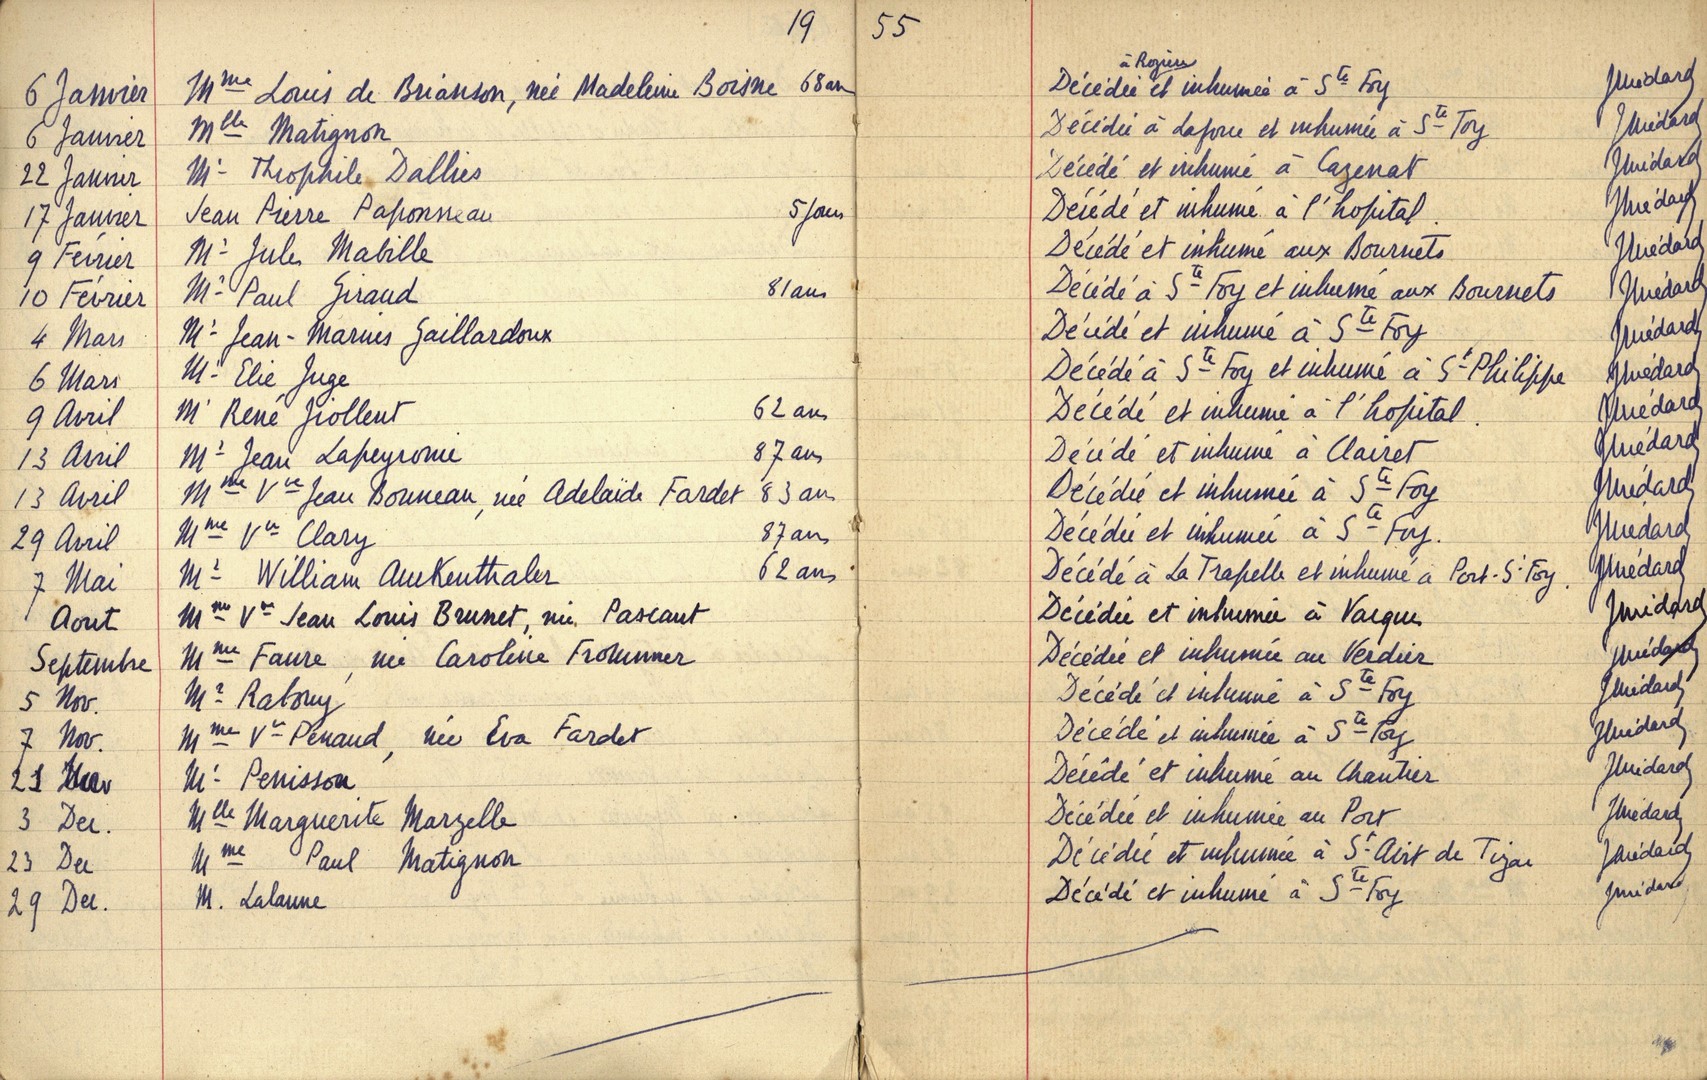 19 55
6 Janvier Mme Louis de Brianson, née Madeleine Boisne 68 ans Décédée à Rozière et inhumée à Ste Foy JMédard
6 Janvier Mlle Matignon Décédée à Laforce et inhumée à Ste Foy JMédard
22 Janvier Mr Théophile Dallies Décédé et inhumé à Cazenat JMédard
17 Janvier Jean Pierre Paponneau 5 jours Décédé et inhumé à l'hopital. JMédard
9 Février Mr Jules Mabille Décédé et inhumé aux Bournets JMédard
10 Février Mr Paul Giraud 81 ans Décédé à Ste Foy et inhumé aux Bournets JMédard
4 Mars Mr Jean-Marius Gaillardoux Décédé et inhumé à Ste Foy JMédard
6 Mars Mr Elie Juge Décédé à Ste Foy et inhumé à St Philippe JMédard
9 Avril Mr René Jiollent 62 ans Décédé et inhumé à l'hopital. JMédard
13 Avril Mr Jean Lapeyronie 87 ans Décédé et inhumé à Clairet JMédard
13 Avril Mme Vve Jean Bonneau, née Adelaïde Fardet 83 ans Décédée et inhumée à Ste Foy JMédard
29 Avril Mme Vve Clary 87 ans Décédée et inhumée à Ste Foy. JMédard
7 Mai Mr William Aukenthaler 62 ans Décédé à La Trapelle et inhumé à Port-Ste Foy. JMédard
Aout Mme Vve Jean Louis Brunet, née Pascaut Décédée et inhumée à Vacque JMédard
Septembre Mme Faure, née Caroline Frommer Décédée et inhumée au Verdier JMédard
5 Nov. Mr Rabouy Décédé et inhumé à Ste Foy JMédard
7 Nov. Mme Vve Penaud, née Eva Fardet Décédé et inhumée à Ste Foy JMédard
21 Nov Mr Penisson Décédé et inhumé au Chantier JMédard
3 Dec. Mlle Marguerite Marzelle Décédée et inhumée au Port JMédard
23 Dec Mme Paul Matignon Décédée et inhumée à St Avit de JMédard
29 Dec. M. Lalanne Décédé et inhumé à Ste Foy JMédard